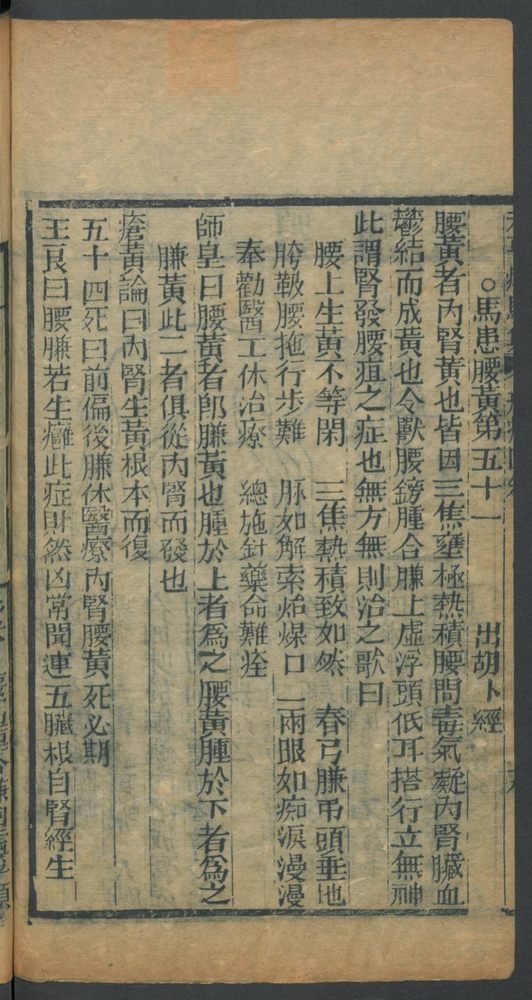 ○馬患腰黃第五十一 出胡卜經
腰黃者內腎黃也皆因三焦壅極熱積腰間毒氣凝內腎臟血
鬱結而成黃也令獸腰鎊腫合膁上虛浮頭低耳搭行立無神
此謂腎發腰疽之症也無方無則治之歌曰
腰上生黃不等閑 三焦熱積致如然 春弓膁弔頭垂地
胯鞍腰拖行步難 脉如解索炲煤口 兩眼如痴淚漫漫
奉勸醫工休治療 總施針藥命難痊
師皇曰腰黃者郎膁黃也腫於上者為之腰黃腫於下者為之
膁黃此二者俱從內腎而發也
瘡黃論曰內腎生黃根本而復
五十四死曰前偏後膁休醫療內腎腰黃死必期
王良曰腰膁若生癰此症財然凶常聞連五臟根自腎經生